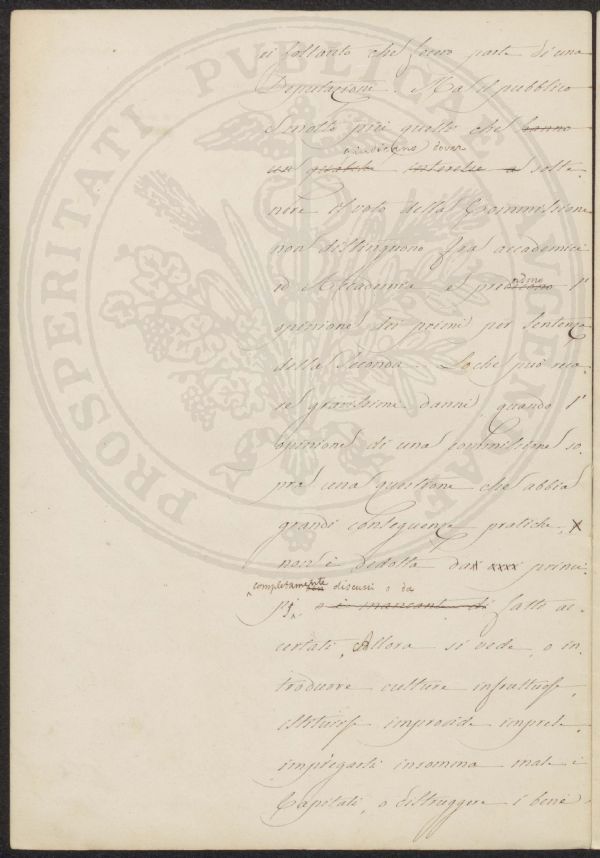 ei soltanto che fecero parte di una
Deputazione. Ma il pubblico
e molto più quello che hanno
giudicano dover
un qualche interesse a soste
nere il voto della Commissione
non distinguono fra accademici
ed Accademia e prendono l'
ndmo
opinione dei primi per sentenza
della seconda. Loché può reca
re gravissimi danni quando l'
opinione di una commissione so
pra una questione che abbia
grandi conseguenze pratiche, X
non è dedotta da xxxx princi
completamente discussi o da
pj, o i mancanti di fatti ac
certati. Allora si vede, o in
trodurre culture infruttuose,
istituirsi improvide imprese
impiegarsi insomma male i
Capitali, o distruggere i beni
PROSPERITATI PUBLICAE AUGENDAE